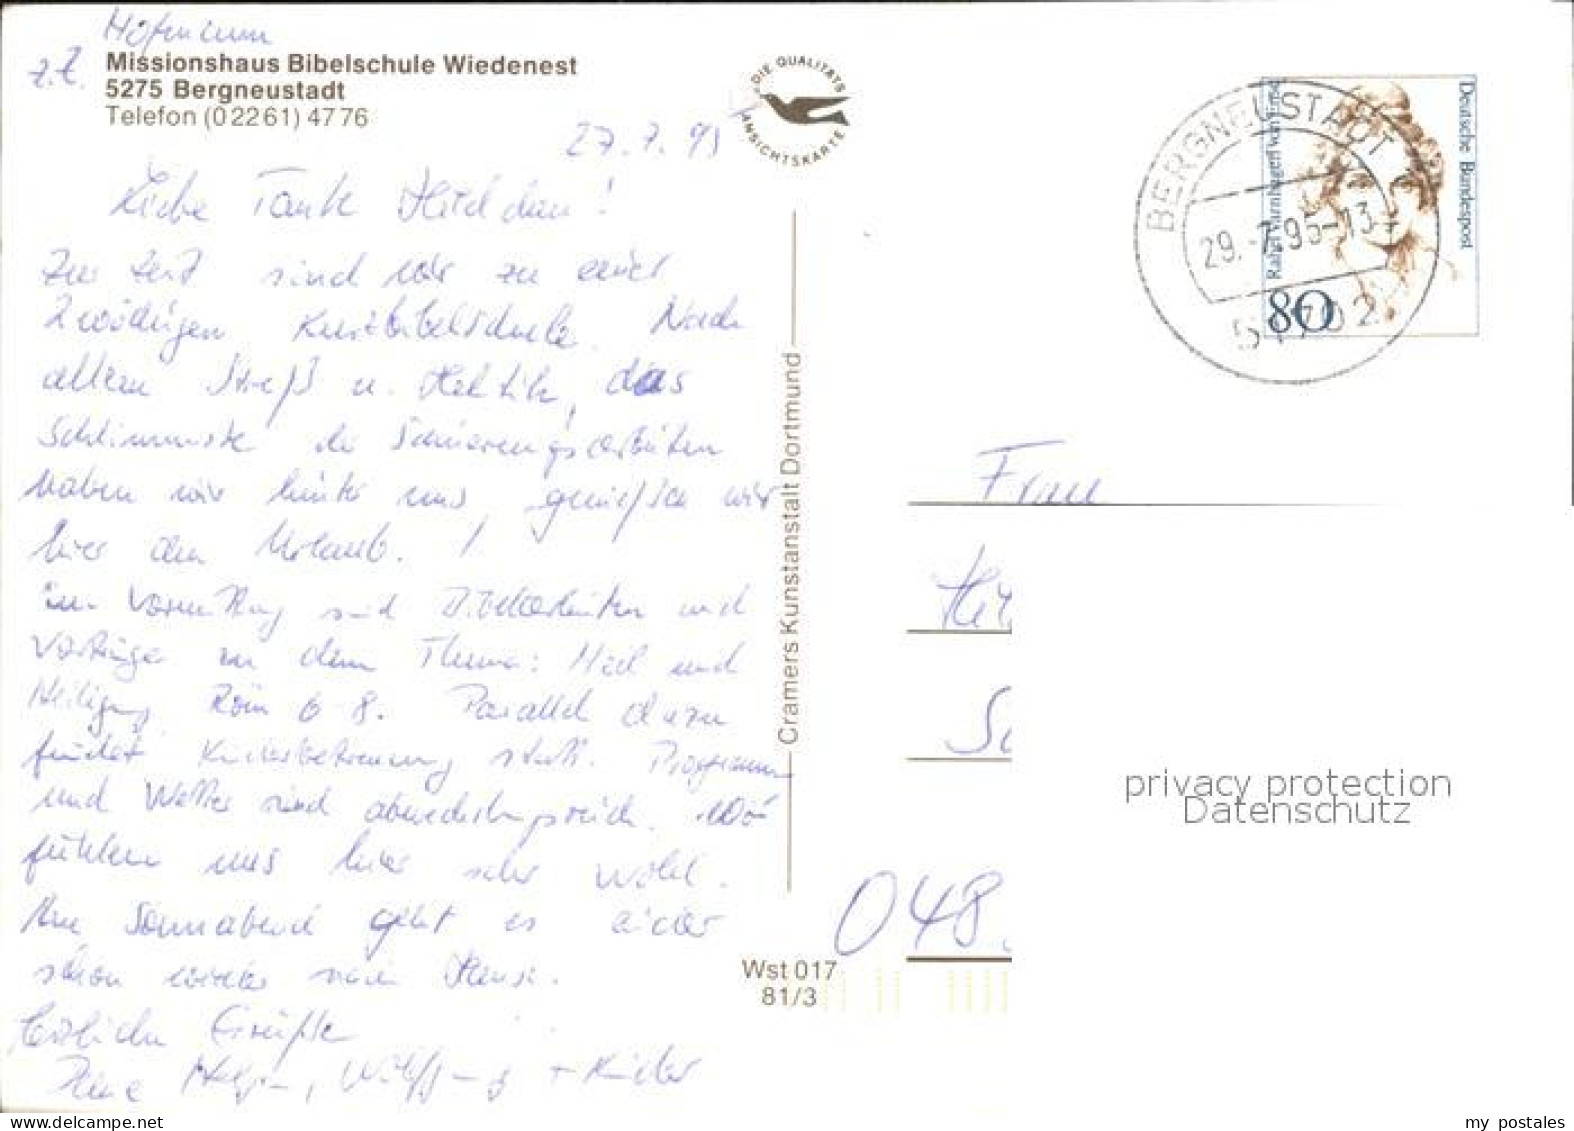 z.Z.
Missionshaus Bibelschule Wiedenest
5275 Bergneustadt
Telefon (02261) 4776
DIE QUALITÄTS
ANSICHTSKARTE
27.7.95
Liebe Tante
Zur Zeit sind wir zu einer
2 wöchigen Kurzbibelschule. Nach
allem Streß u. Hektik, das
Schlimmste die Sanierungsarbeiten
haben wir hinter uns, genießen wir
hier den Urlaub.
im Vormittag sind Bibelarbeiten und
Vorträge zu dem Thema: Heil und
Heiligung Röm 6-8. Parallel dazu
findet Kinderbetreuung statt. Programm
und Wetter sind abwechslungsreich. Wir
fühlen uns hier sehr wohl.
Am Sonnabend geht es leider
schon wieder nach Hause.
Herzliche Grüße
Wolfgang + Kinder
Cramers Kunstanstalt Dortmund
Wst 017
81/3
BERGNEUSTADT
29.-7.95-13
51702
Deutsche Bundespost
Rahel Varnhagen von Ense
80
Frau
048
privacy protection
Datenschutz
www.delcampe.net
my postales